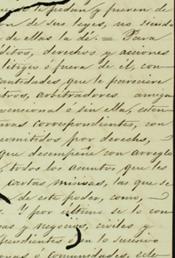 que se le pidan, y fueren de
de sus leyes, no siendo
de ellas la de = Para
ditos, derechos y acciones
litigios ó fuera de él, con
cantidades, que le pareciere
otros, arbitradores amiga
vencional ó sin ella,
correspondientes, con
permitidos por derecho,
que desempeñe con arreglo
todos los asuntos que les
cartas misivas, las que se
de este poder, como
Y por último se lo con
sas y negocios, civiles y
pendientes en lo sucesivo
ó comunidades, este